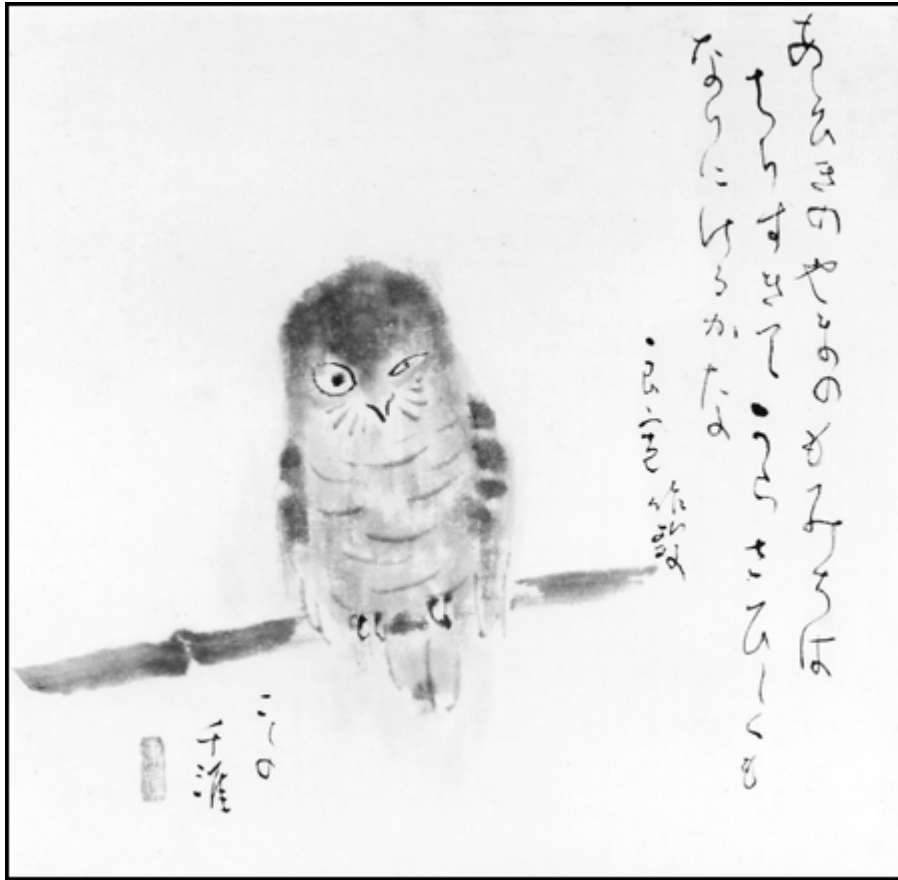 あしひきのやまのもみちは
ちりすきてうらさひしくも
なりにけるかな
良寛作歌
こしの
千涯